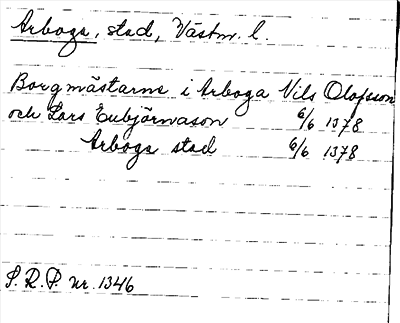 Arboga, stad, Västm. l.
Borgmästarne i Arboga Nils Olofsson
och Lars Eubjörnason 6/6 1378
Arboga stad 6/6 1378
S.R.P. nr. 1346